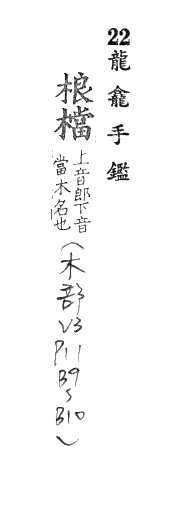 22龍龕手鑑
桹檔上音郎下音
當木名也（木部V3P11B9~B10）